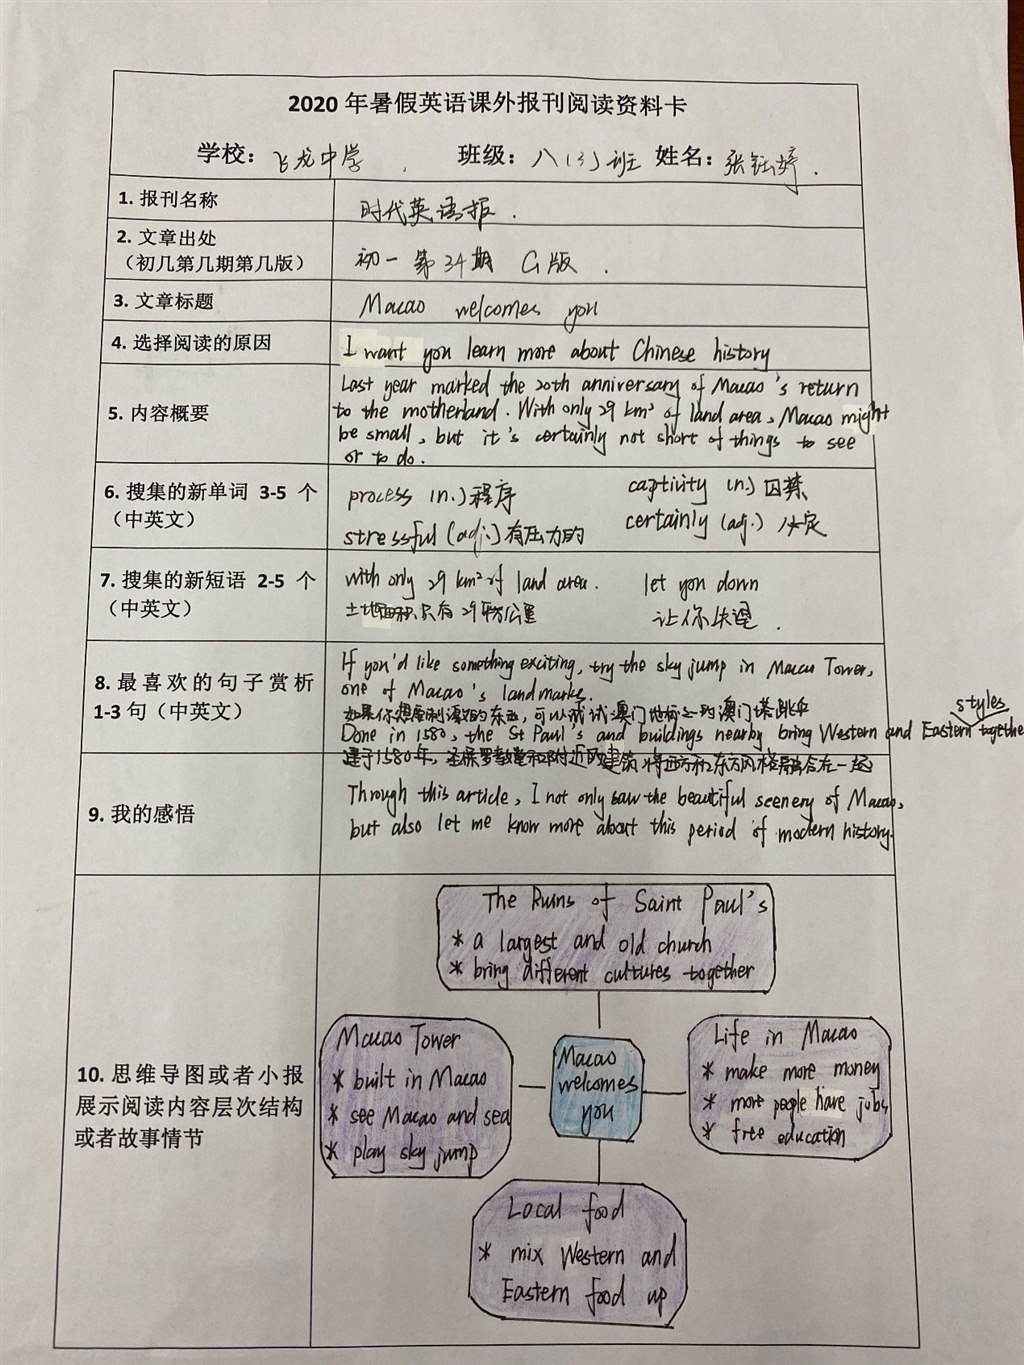 2020 年暑假英语课外报刊阅读资料卡
学校: 飞龙中学 . 班级: 八(3)班 姓名: 张钰婷 .
1. 报刊名称 时代英语报 .
2. 文章出处
(初几第几期第几版) 初一第34期 G版 .
3. 文章标题 Macao welcomes you
4. 选择阅读的原因 I want you learn more about Chinese history
5. 内容概要
Last year marked the 20th anniversary of Macao's return
to the motherland. With only 29 km² of land area, Macao might
be small, but it's certainly not short of things to see
or to do.
6. 搜集的新单词 3-5 个
(中英文)
process (n.) 程序 captivity (n.) 囚禁
stressful (adj.) 有压力的 certainly (adj.) 必定
7. 搜集的新短语 2-5 个
(中英文)
with only 29 km² of land area. let you down
土地面积只有29平方公里 让你失望 .
8. 最喜欢的句子赏析
1-3 句(中英文)
If you'd like something exciting, try the sky jump in Macau Tower,
one of Macao's landmarks.
如果你想要刺激的东西,可以试试澳门地标之一的澳门塔跳伞
Done in 1580, the St Paul's and buildings nearby bring Western and Eastern styles together
建于1580年,圣保罗教堂和附近的建筑将西方和东方风格融合在一起
9. 我的感悟
Through this article, I not only saw the beautiful scenery of Macao,
but also let me know more about this period of modern history.
10. 思维导图或者小报
展示阅读内容层次结构
或者故事情节
The Ruins of Saint Paul's
* a largest and old church
* bring different cultures together
Macao Tower
* built in Macao
* see Macao and sea
* play sky jump
Macao
welcomes
you
Life in Macao
* make more money
* more people have jobs
* free education
Local food
* mix Western and
Eastern food up